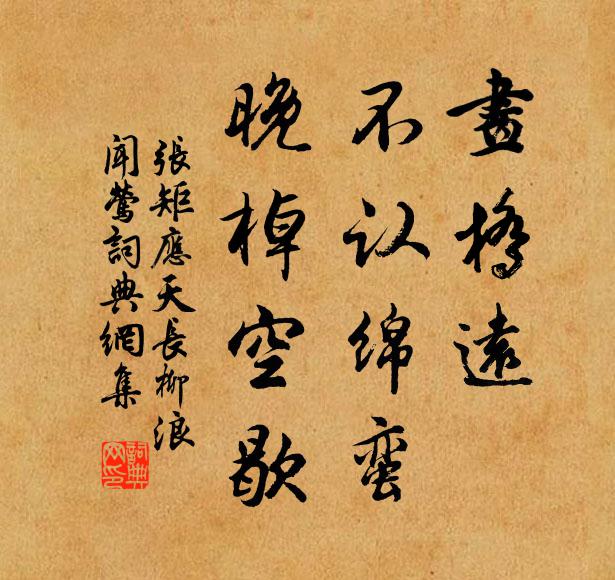 畫橋遠
不认绵蛮
晚棹空歇
張矩應天長柳浪
聞鶯詞典網集
詞典
网印